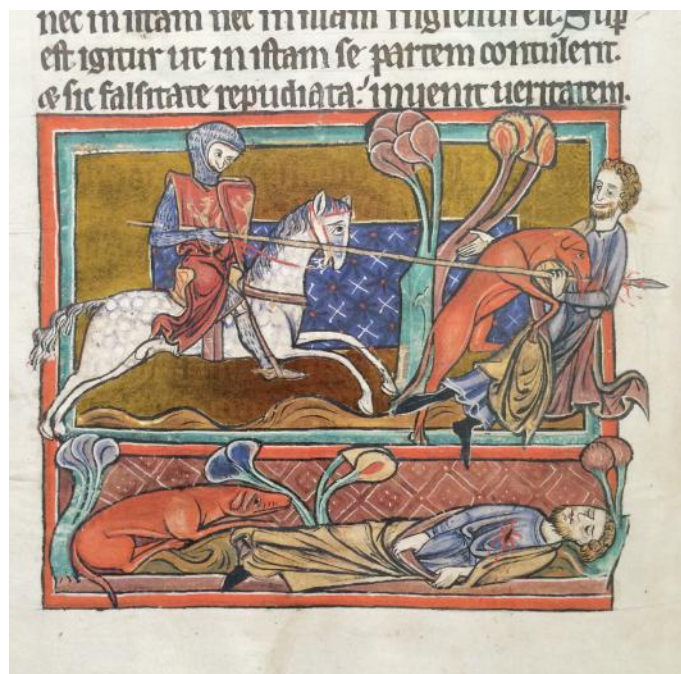 nec in istam nec in illam ingressus est. Sup
est igitur ut in istam se partem contulerit.
& sic falsitate repudiata. inuenit ueritatem.